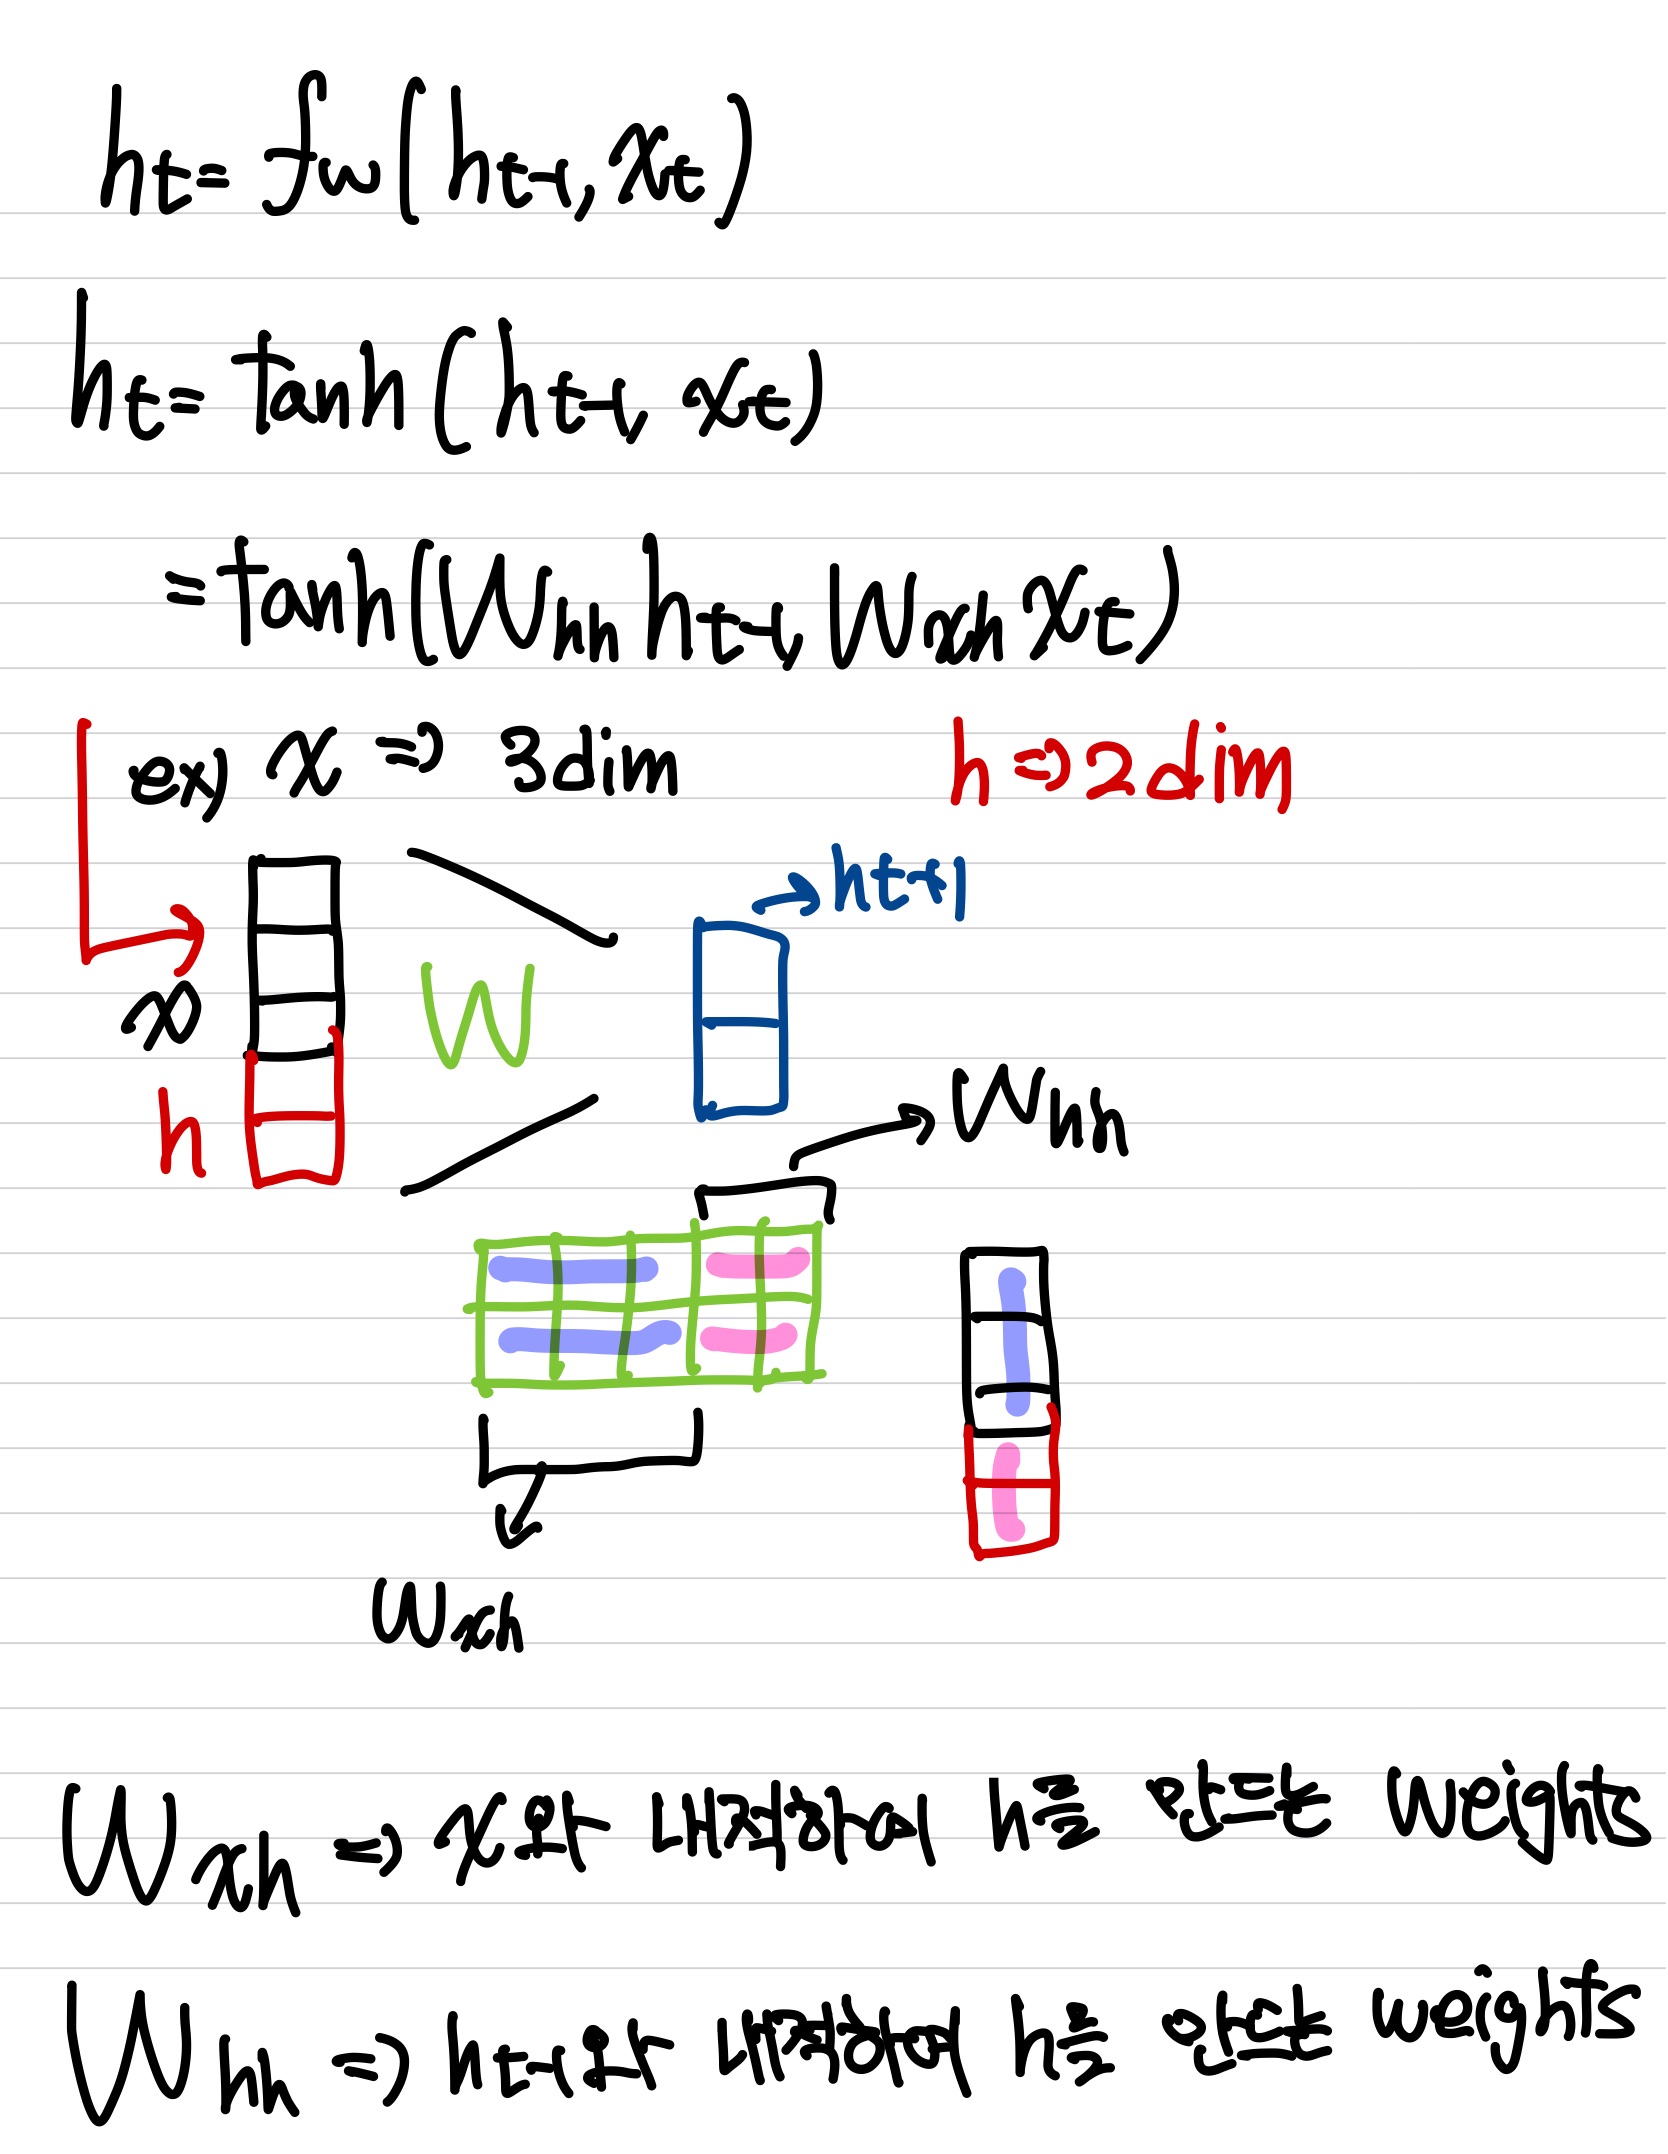 h_t = f_w(h_t-1, x_t)
h_t = tanh(h_t-1, x_t)
= tanh(W_hh h_t-1, W_xh x_t)
ex) x ⇒ 3dim h ⇒ 2dim
→ h_t+1
x
W
h
W_hh
W_xh
W_xh ⇒ x와 내적하여 h를 만드는 weights
W_hh ⇒ h_t-1와 내적하여 h를 만드는 weights